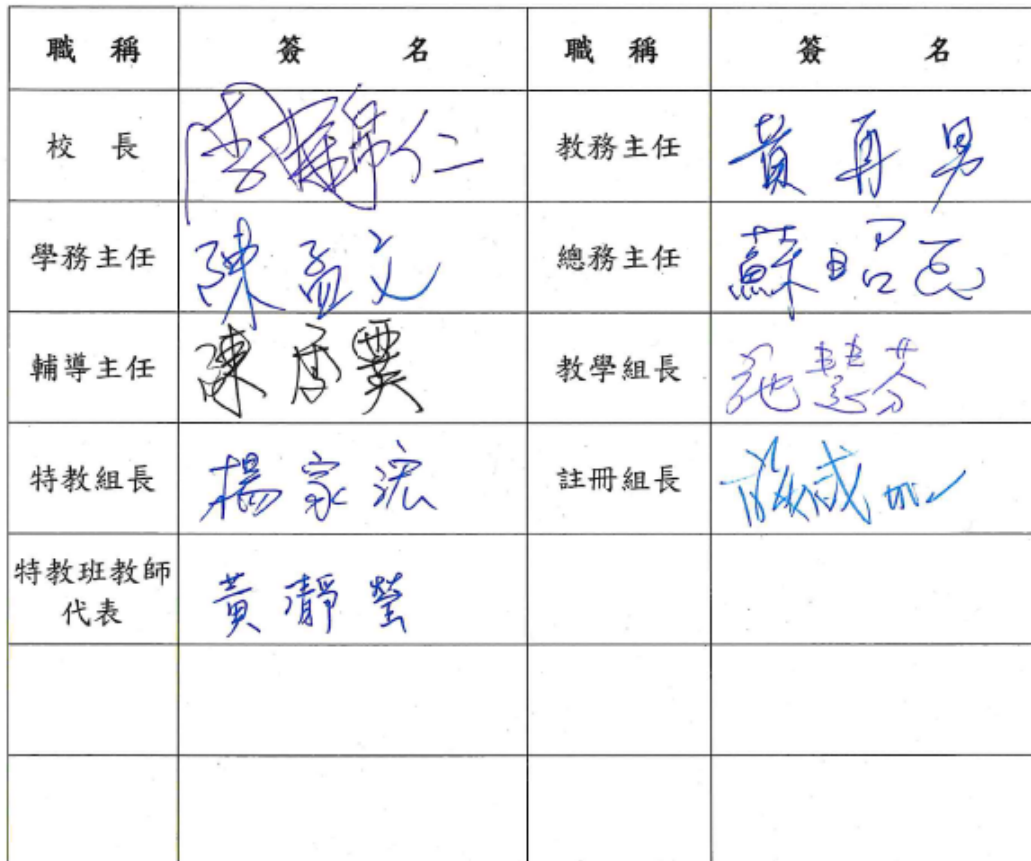 職 稱 簽 名 職 稱 簽 名
校 長 教務主任 黃再男
學務主任 陳孟文 總務主任 蘇昭
輔導主任 陳 教學組長 施慧芬
特教組長 楊家浤 註冊組長
特教班教師
代表 黃瀞瑩